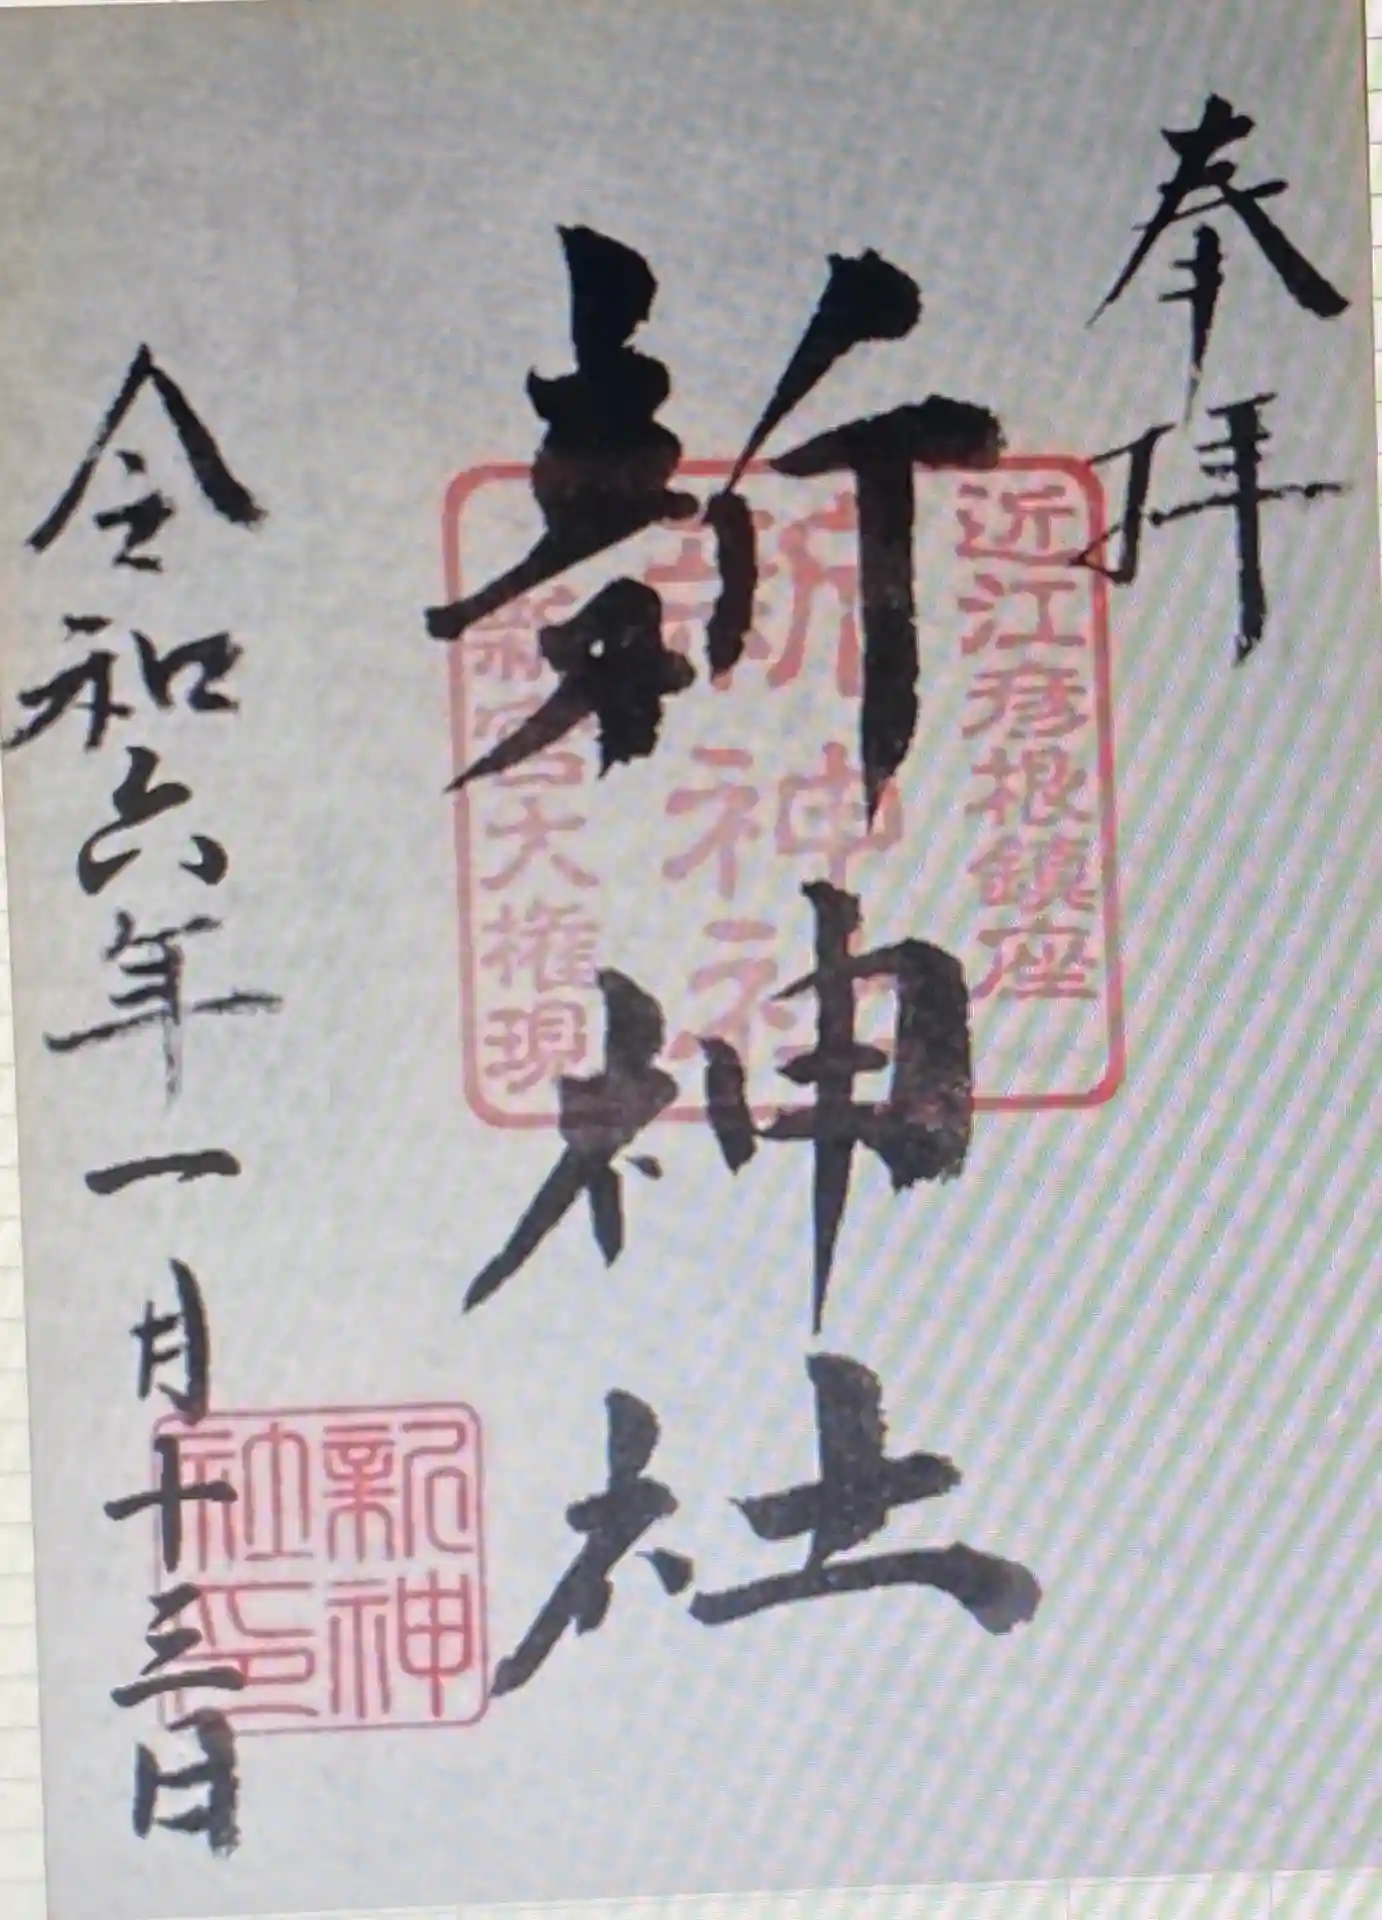 奉拝
近江彦根鎮座
新神社
新神社
新宮大権現
新神社印
令和六年一月十三日